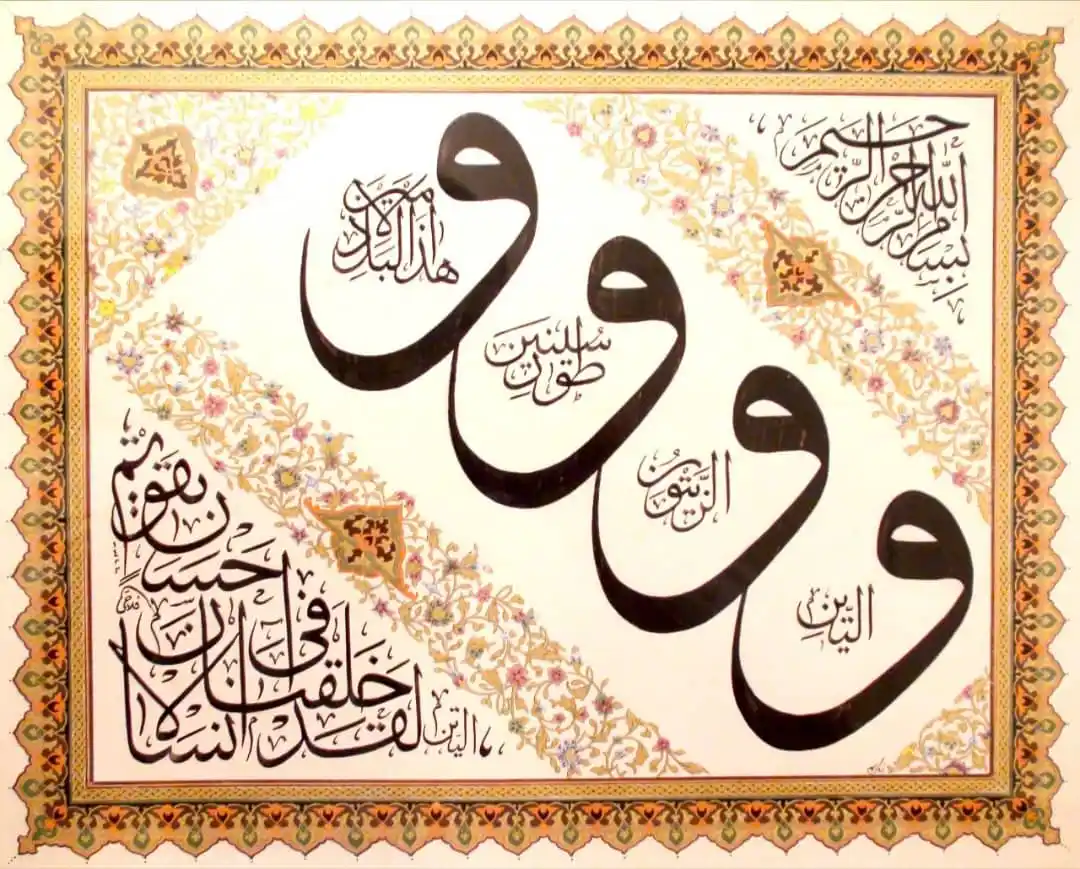 بسم الله الرحمن الرحيم
و التين
و الزيتون
و طور سينين
و هذا البلد الامين
لقد خلقنا الانسان في احسن تقويم
التين